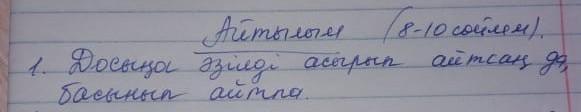 Айтылым (8-10 сөйлем).
1. Досыңа әзілді асырып айтсаң да,
басынып айтпа.